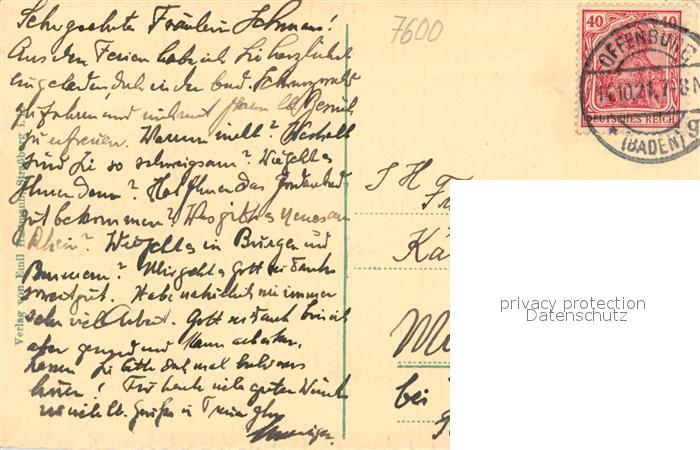 Sehr geehrtes Fräulein
Aus den Ferien habe ich Sie herzlichst
eingeladen, doch in den bad. Schwarzwald
zu fahren und mich mit Ihrem lb. Besuch
zu erfreuen. Warum nicht? Weshalb
sind Sie so schweigsam? Wie geht es
Ihnen denn? Hat Ihnen das
gut bekommen? Was gibt es Neues am
Rhein? Wie geht es in Bingen und
? Mir geht es Gott sei Dank
soweit gut. Habe natürlich wie immer
sehr viel Arbeit. Gott sei Dank bin ich
aber gesund und kann arbeiten.
Lassen Sie bitte doch mal
hören! Für heute viele gute Wünsche
und viele lb. Grüße in Treue
7600
40 40
DEUTSCHES REICH
OFFENBURG
14.10.21. 7-8 N
* (BADEN)
Verlag von Emil Hartmann, Straßburg i.
Mü
bei
privacy protection
Datenschutz